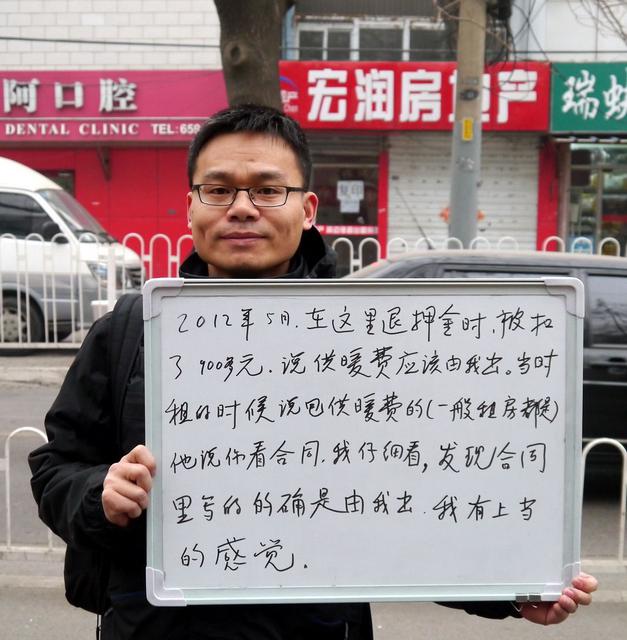 阿口腔
DENTAL CLINIC TEL:659
宏润房 产
瑞蚨
2012年5月.在这里退押金时.被扣
了900多元.说供暖费应该由我出。当时
租的时候说包供暖费的(一般租房都是)
他说你看合同.我仔细看,发现合同
里写的的确是由我出.我有上当
的感觉.